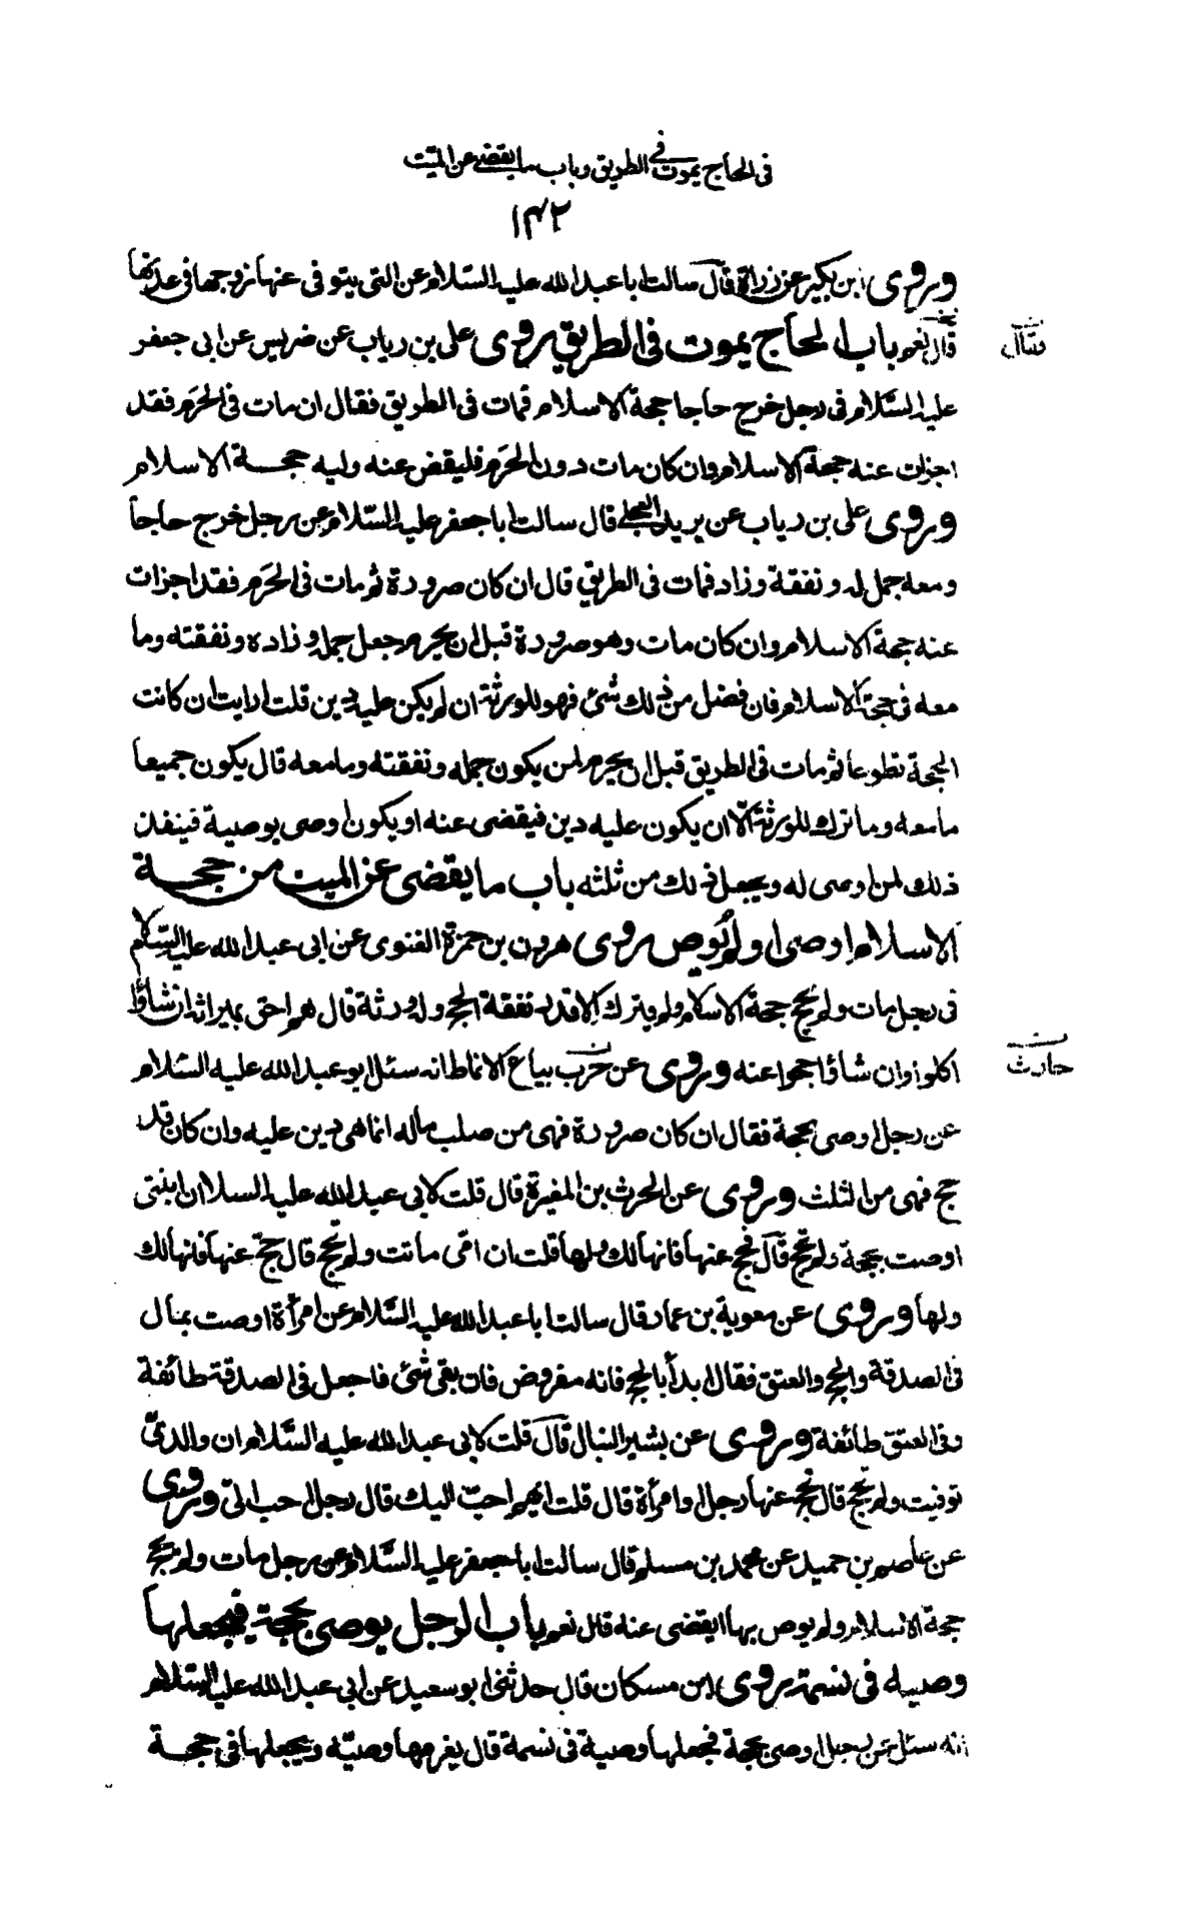 فى الحاج يموت فى الطريق وباب ما يقضى عن الميت
١٤٢
وروى ابن بكير عن زرارة قال سالت ابا عبد الله عليه السّلام عن التى يتوفى عنها زوجها فى عدتها
تحج
قال نعم باب الحاج يموت فى الطريق روى على بن رياب عن ضريس عن ابى جعفر
فقال
عليه السّلام فى رجل خرج حاجا حجة الاسلام فمات فى الطريق فقال ان مات فى الحرم فقد
اجزات عنه حجة الاسلام وان كان مات دون الحرم فليقض عنه وليه حجة الاسلام
وروى على بن رياب عن بريد العجلى قال سالت ابا جعفر عليه السّلام عن رجل خرج حاجا
ومعه جمل له ونفقة وزاد فمات فى الطريق قال ان كان صرورة ثم مات فى الحرم فقد اجزات
عنه حجة الاسلام وان كان مات وهو صرورة قبل ان يحرم جعل جمله وزاده ونفقته وما
معه فى حجة الاسلام فان فضل من ذلك شئ فهو للورثة ان لم يكن عليه دين قلت ارايت ان كانت
الحجة تطوعا ثم مات فى الطريق قبل ان يحرم لمن يكون جمله ونفقته وما معه قال يكون جميعا
ما معه وما ترك للورثة الّا ان يكون عليه دين فيقضى عنه او يكون اوصى بوصية فينفذ
ذلك لمن اوصى له ويجعل ذلك من ثلثه باب ما يقضى عن الميت من حجة
الاسلام اوصى او لم يوص روى هرون بن حمزة الغنوى عن ابى عبد الله عليه السّلام
فى رجل مات ولم يحج حجة الاسلام ولم يترك الا قدر نفقة الحج وله ورثة قال هم احق بميراثه ان شاؤا
اكلوا وان شاؤا حجوا عنه وروى عن حرب بياع الانماط انه سئل ابو عبد الله عليه السّلام
حارث
عن رجل اوصى بحجة فقال ان كان صرورة فهى من صلب ماله انما هى دين عليه وان كان قد
حج فهى من الثلث وروى عن الحرث بن المغيرة قال قلت لابى عبد الله عليه السلام ان ابنتى
اوصت بحجة ولم تحج قال فحج عنها فانها لك ولها قلت ان امّى ماتت ولم تحج قال حجّ عنها فانها لك
ولها وروى عن معوية بن عمار قال سالت ابا عبد الله عليه السّلام عن امرأة اوصت بمال
فى الصدقة والحج والعتق فقال ابدأ بالحج فانه مفروض فان بقى شئ فاجعل فى الصدقة طائفة
وفى العتق طائفة وروى عن بشير النبال قال قلت لابى عبد الله عليه السّلام ان والدتى
توفيت ولم تحج قال يحج عنها رجل او امرأة قال قلت ايهم احبّ اليك قال رجل احب الىّ وروى
عن عاصم بن حميد عن محمد بن مسلم قال سالت ابا جعفر عليه السّلام عن رجل مات ولم يحج
حجة الاسلام ولم يوص بها ايقضى عنه قال نعم باب الرجل يوصى بحجة فيجعلها
وصيه فى نسمة روى ابن مسكان قال حدثنى ابو سعيد عن ابى عبد الله عليه السّلام
انه سئل عن رجل اوصى بحجة فجعلها وصية فى نسمة قال يغرمها وصيّه ويجعلها فى حجة